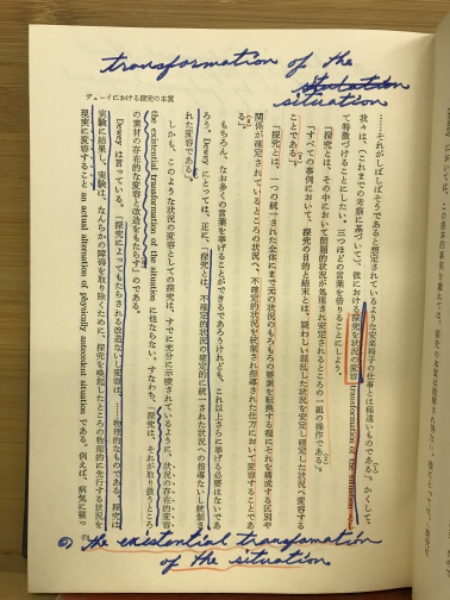 transformation of the
situation
situation
デューイにおける探究の本質
……それがしばしばそうであると想定されているような安楽椅子の仕事とは程遠いものである」。かくして、
我々は、(これまでの考察に基づいて)、彼における探究を状況の変容 transformation of the situation として
て特徴づけることにしたい。三つほどの言葉を借りることにしよう。
「探究とは、その中において問題的状況が処理され安定されるところの一組の操作である」。
「すべての事例において、探究の目的と結末とは、疑わしい混乱した状況を安定し確定した状況へ変容する
ことである」。
「探究とは、一つの統一された全体にまで元の状況のもろもろの要素を転換する程にそれを構成する区別や
関係が確定されているところの状況へ、不確定的状況を統制され指導された仕方において変容することであ
る」。
もちろん、なお多くの言葉を挙げることができるであろうけれども、これ以上さらに挙げる必要はないであ
ろう。Dewey にとっては、正に、「探究とは、不確定的状況の確定的に統一された状況への指導ないし統制さ
れた変容である」。
しかも、このような状況の変容としての探究は、すでに充分に示唆されているように、状況の存在的な変容
the existential transformation of the situation に他ならない。すなわち、「探究は、それが取り扱うところ
の素材の存在的な変容と改造をもたらす」のである。
Dewey は言っている。「探究によってもたらされる改造ないし変容は、……物理的なものである。探究は
実験に結果し、実験は、なんらかの障碍を取り除くために、探究を喚起したところの物理的に先行する状況を
現実に変容すること an actual alternation of physically antecedent situation である。例えば、病気に罹っ
the existential transfomation
of the situation